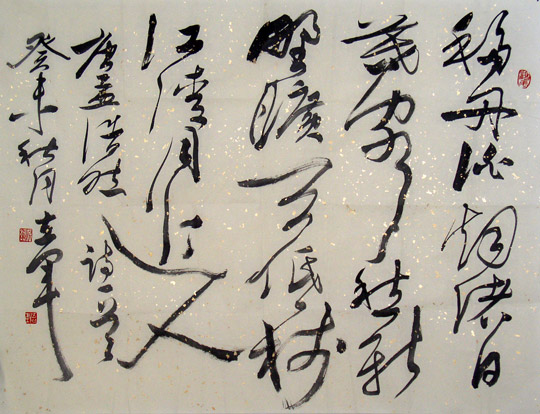 移舟泊烟渚日
暮客愁新
野旷天低树
江清月近人
唐孟浩然诗一首
癸未秋月